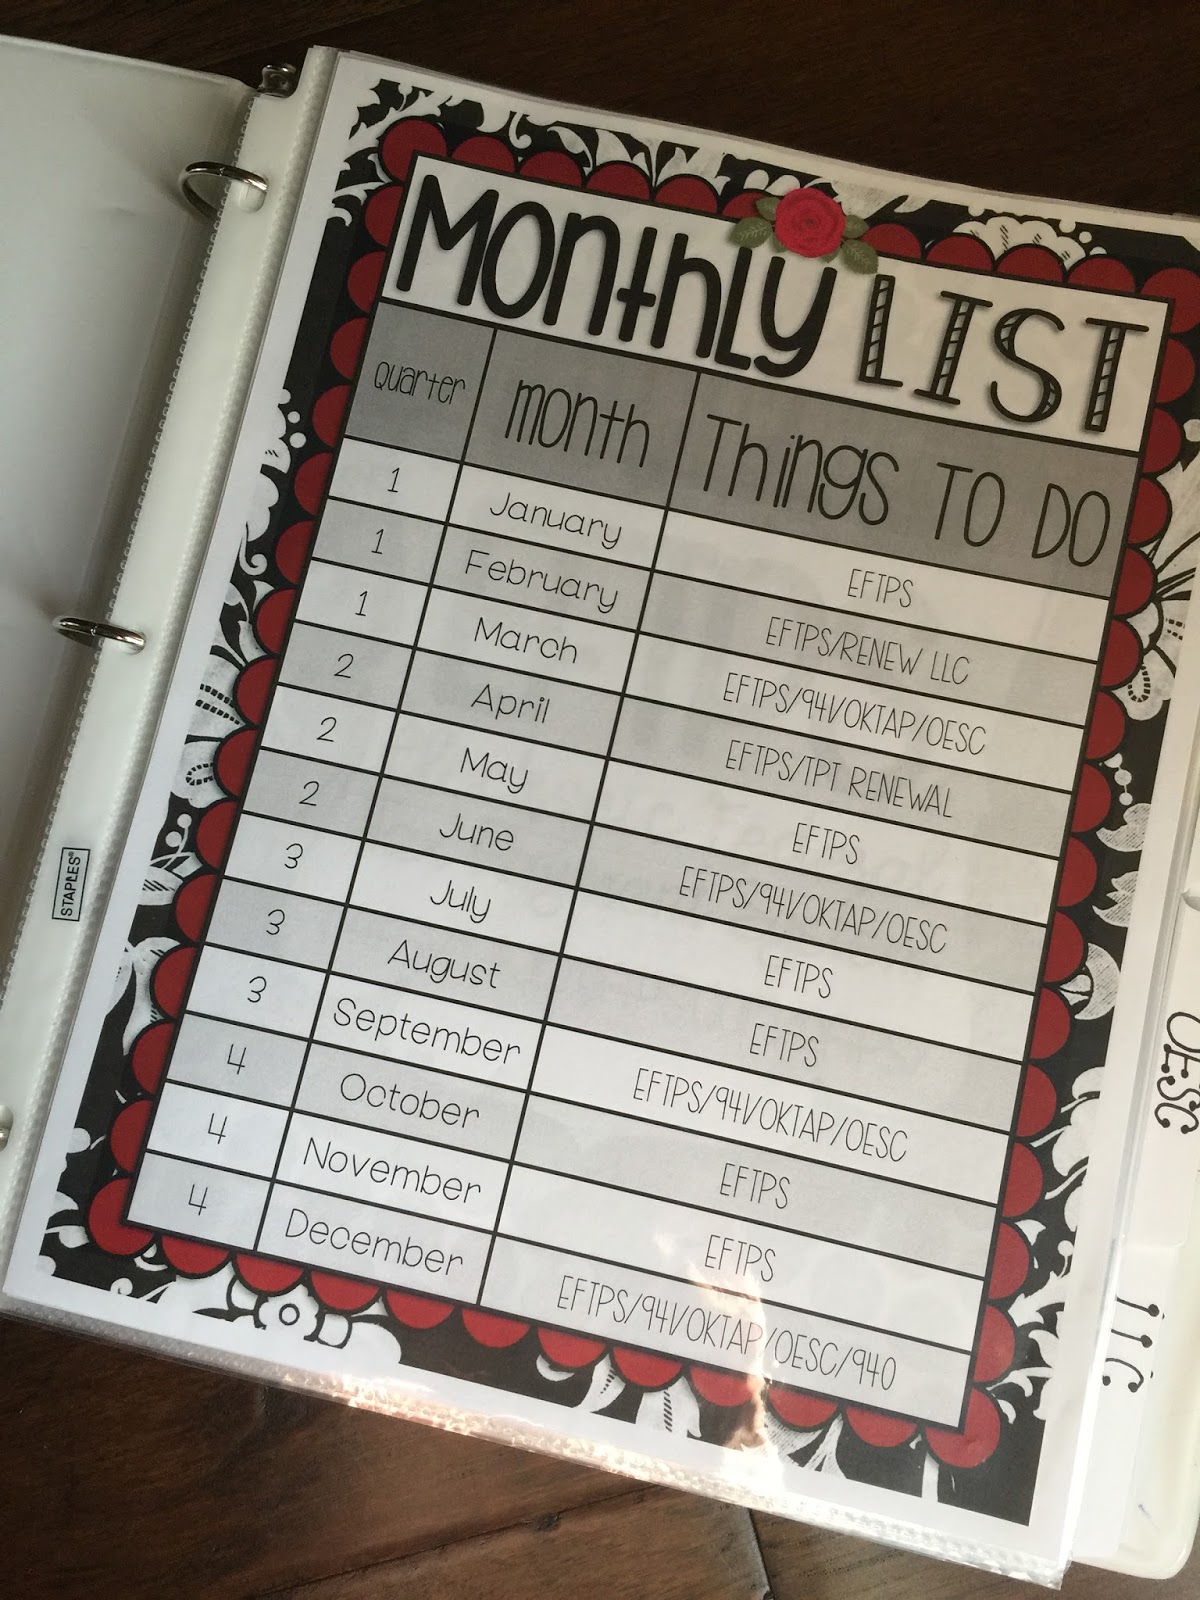 Monthly LIST
Quarter month Things TO DO
1 January EFTPS
1 February EFTPS/RENEW LLC
1 March EFTPS/941/OKTAP/OESC
2 April EFTPS/TPT RENEWAL
2 May EFTPS
2 June EFTPS/941/OKTAP/OESC
3 July EFTPS
3 August EFTPS
3 September EFTPS/941/OKTAP/OESC
4 October EFTPS
4 November EFTPS
4 December EFTPS/941/OKTAP/OESC/940
STAPLES®
OESC